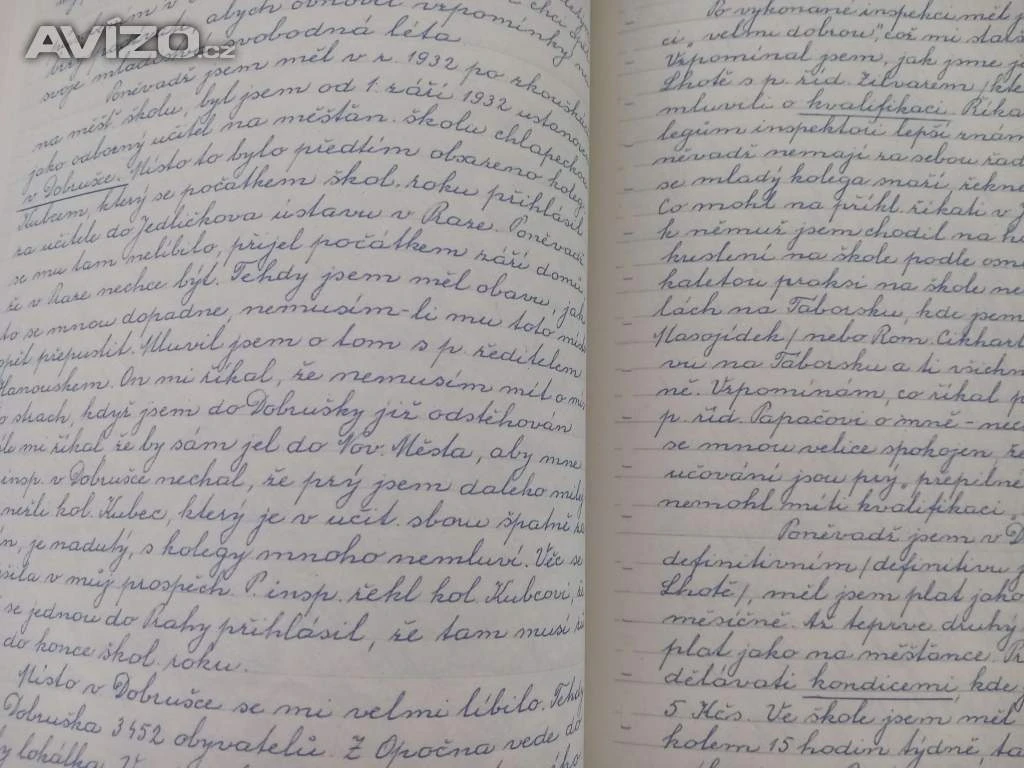 AVIZO.cz
abych obnovil vzpomínky na
svoje svobodná léta.
Poněvadž jsem měl v r. 1932 po zkoušku
na měšť. školu, byl jsem od 1. září 1932 ustanoven
jako odborný učitel na měšťan. školu chlapeckou
v Dobrušce. Místo to bylo předtím obsazeno kolegy
Kubcem, který se počátkem škol. roku přihlásil
za učitele do Jedličkova ústavu v Praze. Poněvadž
se mu tam nelíbilo, přijel počátkem září domů,
že v Praze nechce být. Tehdy jsem měl obavu, jak
to se mnou dopadne, nemusím-li mu toto místo
zpět přepustit. Mluvil jsem o tom s p. ředitelem
Hanouskem. On mi říkal, že nemusím mít o mís
strach, když jsem do Dobrušky již odstěhován
mi říkal že by sám jel do Nov. Města, aby mne
insp. v Dobrušce nechal, že prý jsem daleko milý
nežli kol. Kubec, který je v učit. sboru špatně za
, je nadutý, s kolegy mnoho nemluví. Věc se
v můj prospěch. P. insp. řekl kol. Kubcovi, že
se jednou do Prahy přihlásil, že tam musí být
do konce škol. roku.
Místo v Dobrušce se mi velmi líbilo. Tehdy
Dobruška 3452 obyvatelů. Z Opočna vede do
lokálka.
Po vykonané inspekci měl j
ci „velmi dobrou“, což mi sta
Vzpomínal jsem, jak jsme j
Lhotě s p. říd. Zilvarem /kte
mluvili o kvalifikaci. Říka
legům inspektoři lepší znám
něvadž nemají za sebou řad
se mladý kolega snaží, řekne
Co mohl na příkl. říkati v J
k němuž jsem chodil na h
krštení na škole podle osn
haletou praksi na škole ne
lách na Táborsku, kde jsem
Masojídek /nebo Rom. Cikhart
vu na Táborsku a ti všichn
ně. Vzpomínám, co říkal p
p. říd. Papačovi o mně - nec
se mnou velice spokojen, že
učování jsou prý „přepilné
nemohl míti kvalifikaci „
Poněvadž jsem v D
definitivním /definitivu j
Lhotě/, měl jsem plat jako
měsíčně. Až teprve druhý
plat jako na měšťance. Př
dělávati kondicemi, kde j
5 Kčs. Ve škole jsem měl
kolem 15 hodin týdně, ta